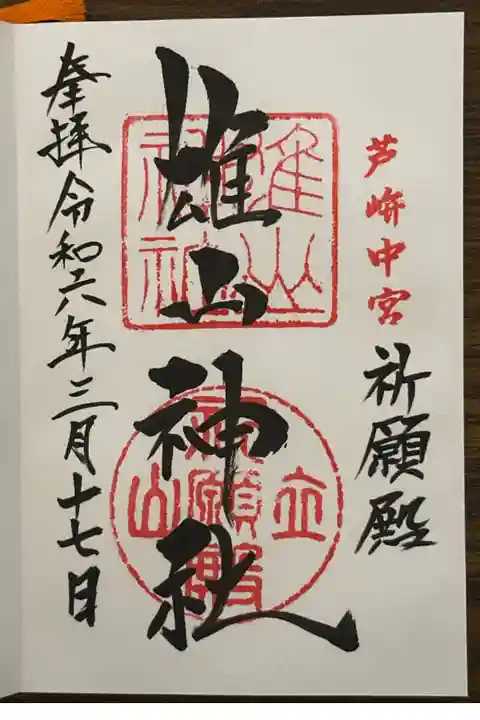 芦峅中宮
祈願殿
雄山神社
雄山
神社
立山
祈願殿
奉拝令和六年三月十七日